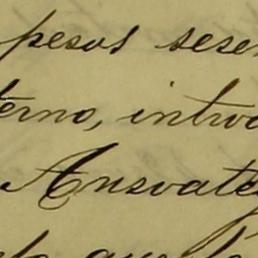 pesos sese
terno, introd
Ansvate